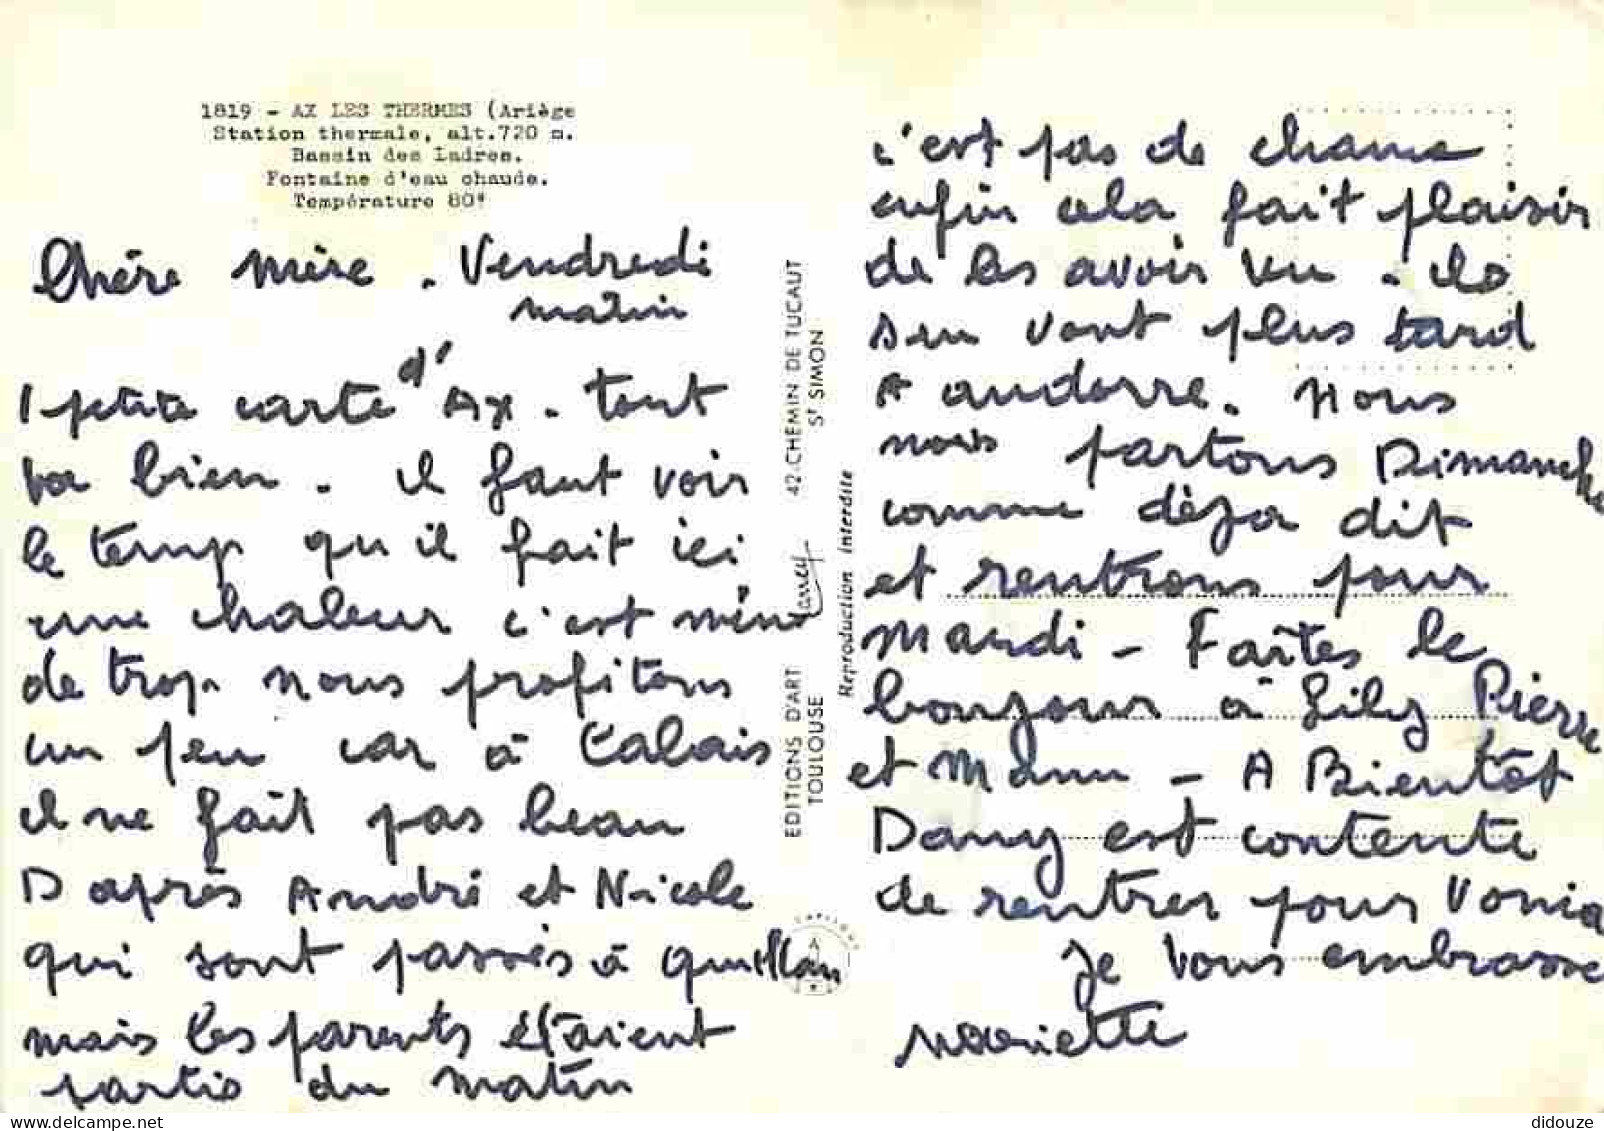 1819 - AX LES THERMES (Ariège
Station thermale, alt.720 m.
Bassin des Ladres.
Fontaine d'eau chaude.
Température 80°
Chère Mère. Vendredi
matin
1 petite carte d'Ax. tout
va bien. il faut voir
le temp qu'il fait ici
une chaleur c'est même
de trop. nous profitons
un peu car à Calais
il ne fait pas beau
D après André et Nicole
qui sont passés à Quillan
mais les parents étaient
partis du matin
c'est pas de chance
enfin cela fait plaisir
de les avoir vu. ils
s'en vont plus tard
A andorre. Nous
nous partons Dimanche
comme déja dit
et rentrons pour
Mardi - Faites le
bonjour à Lily Pierre
et Manu - A Bientôt
Dany est contente
de rentrer pour Vonia
Je vous embrasse
Mariette
EDITIONS D'ART
TOULOUSE
42 CHEMIN DE TUCAUT
ST SIMON
Reproduction interdite
delcampe.net
didouze